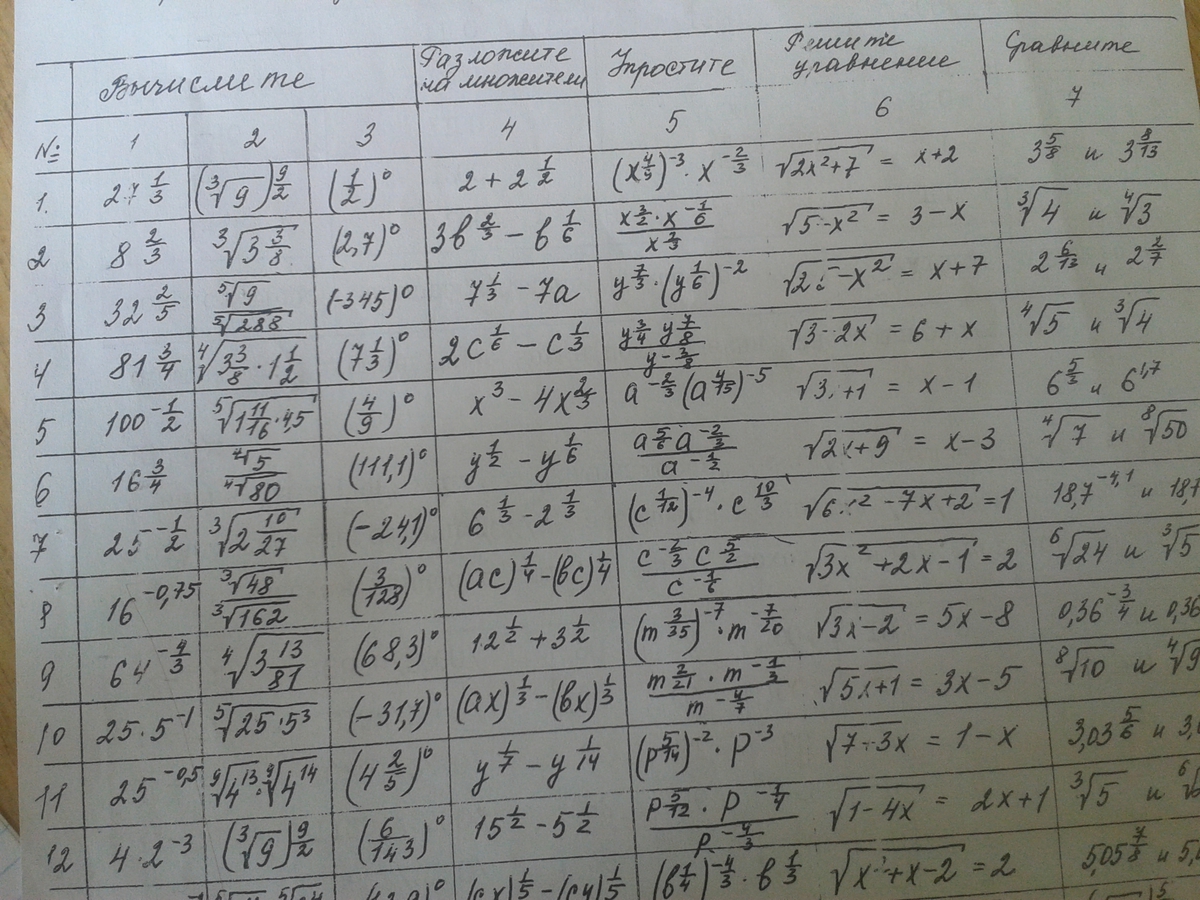 Вычислите | Разложите на множители | Упростите | Решите уравнение | Сравните
№ | 1 | 2 | 3 | 4 | 5 | 6 | 7
1. | 27^{1/3} | (∛9)^{9/2} | (1/2)^0 | 2 + 2^{1/2} | (x^{4/9})^{-3} · x^{-2/3} | √(2x²+7) = x+2 | 3^{5/8} и 3^{8/13}
2 | 8^{2/3} | ∛(3 3/8) | (2,7)^0 | 3b^{2/3} − b^{1/6} | (x^{3/2} · x^{-1/6}) / x^{2/3} | √(5−x²) = 3−x | ∛4 и ∜3
3 | 32^{2/5} | ⁵√9 / ⁵√288 | (-345)^0 | 7^{1/3} − 7a | y^{7/3} · (y^{1/6})^{-2} | = x+7 | 2^{6/13} и 2^{2/7}
4 | 81^{3/4} | ∜(3 3/8 · 1 1/2) | (7 1/3)^0 | 2c^{1/6} − c^{1/3} | (y^{3/4} y^{7/8}) / y^{-3/8} | √(3−2x) = 6+x | ∜5 и ∛4
5 | 100^{-1/2} | ⁵√(1 11/16 · 4,5) | (4/9)^0 | x^3 − 4x^{2/3} | a^{-2/3} (a^{4/15})^{-5} | = x−1 | 6^{5/3} и 6^{1,7}
6 | 16^{3/4} | ∜5 / ∜80 | (111,1)^0 | y^{1/2} − y^{1/6} | (a^{5/6} a^{-2/3}) / a^{-1/2} | √(2x+9) = x−3 | ∜7 и ⁸√50
7 | 25^{-1/2} | ∛(2 10/27) | (-24,1)^0 | 6^{1/3} − 2^{1/3} | (c^{1/12})^{-4} · c^{10/3} | √(6x²−7x+2) = 1 | 18,7^{-4,1} и 18,7
8 | 16^{-0,75} | ∛48 / ∛162 | (3/128)^0 | (ac)^{1/4} − (bc)^{1/4} | (c^{-2/3} c^{5/2}) / c^{-1/6} | √(3x²+2x−1) = 2 | ⁶√24 и ∛5
9 | 64^{-4/3} | ∜(3 13/81) | (68,3)^0 | 12^{1/2} + 3^{1/2} | (m^{3/35})^{-7} · m^{-7/20} | √(3x−2) = 5x−8 | 0,36^{-3/4} и 0,36
10 | 25·5^{-1} | ⁵√(25·5³) | (-31,7)^0 | (ax)^{1/3} − (bx)^{1/3} | (m^{2/21} · m^{-1/3}) / m^{-4/7} | √(5x+1) = 3x−5 | ⁸√10 и ∜9
11 | 25^{-0,5} | ⁹√(4^{13}) · ⁹√(4^{14}) | (4 2/5)^0 | y^{1/7} − y^{1/14} | (p^{5/14})^{-2} · p^{-3} | √(7−3x) = 1−x | 3,03^{5/6} и 3,0
12 | 4·2^{-3} | (∛9)^{9/2} | (6/143)^0 | 15^{1/2} − 5^{1/2} | (p^{5/12} · p^{-1/4}) / p^{-4/3} | √(1−4x) = 2x+1 | ∛5 и
(cx)^{1/5} − (cy)^{1/5} | (b^{1/4})^{-4/3} · b^{1/3} | = 2 | 5,05^{7/8} и 5,0